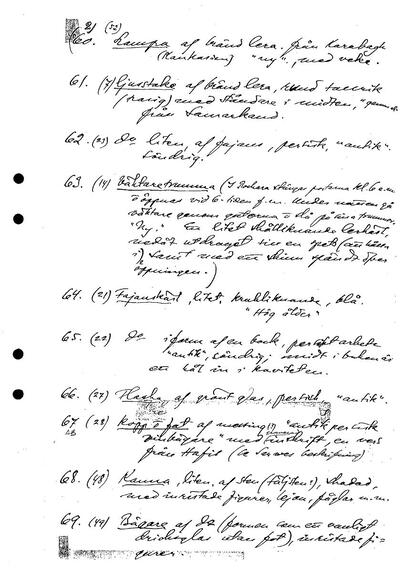 60. (32) Lampa af bränd lera, från Karabagh
(Kaukasien) "ny", med veke.
61. (7) Ljusstake af bränd lera, rund
(rasig) med ståndare i midten,
från Samarkand.
62. (23) Do liten, af fajans, persisk, "antik".
Söndrig.
63. (14) Väktaretrumma (I Bochara stängas portarna kl 6 e.m.
o öppnas vid 6-tiden f.m. Under natten gå
väktare genom gatorna o slå på sina trummor.
"Ny." En litet skålliknande lerkärl,
nedåt utdraget i en spets
samt med ett skinn spändt öfver
öppningen.)
64. (21) Fajanskärl, litet, krukliknande, blå.
"Hög ålder"
65. (22) Do i form af en bock, persiskt arbete
"antik", söndrig, midt i buken är
ett hål in i kaviteten.
66. (27) Flaska af grönt glas, persisk "antik".
67. (28) Kopp o fat af messing, "antik persisk
vinbägare" med inskrift, en vers
från Hafis (Se beskrifning)
68. (48) Kanna, liten, af sten (täljsten?), skadad,
med inristade figurer, lejon, fåglar m.m.
69. (49) Bägare af do (formen som ett vanligt
dricksglas utan fot), inristade fi-
gurer.